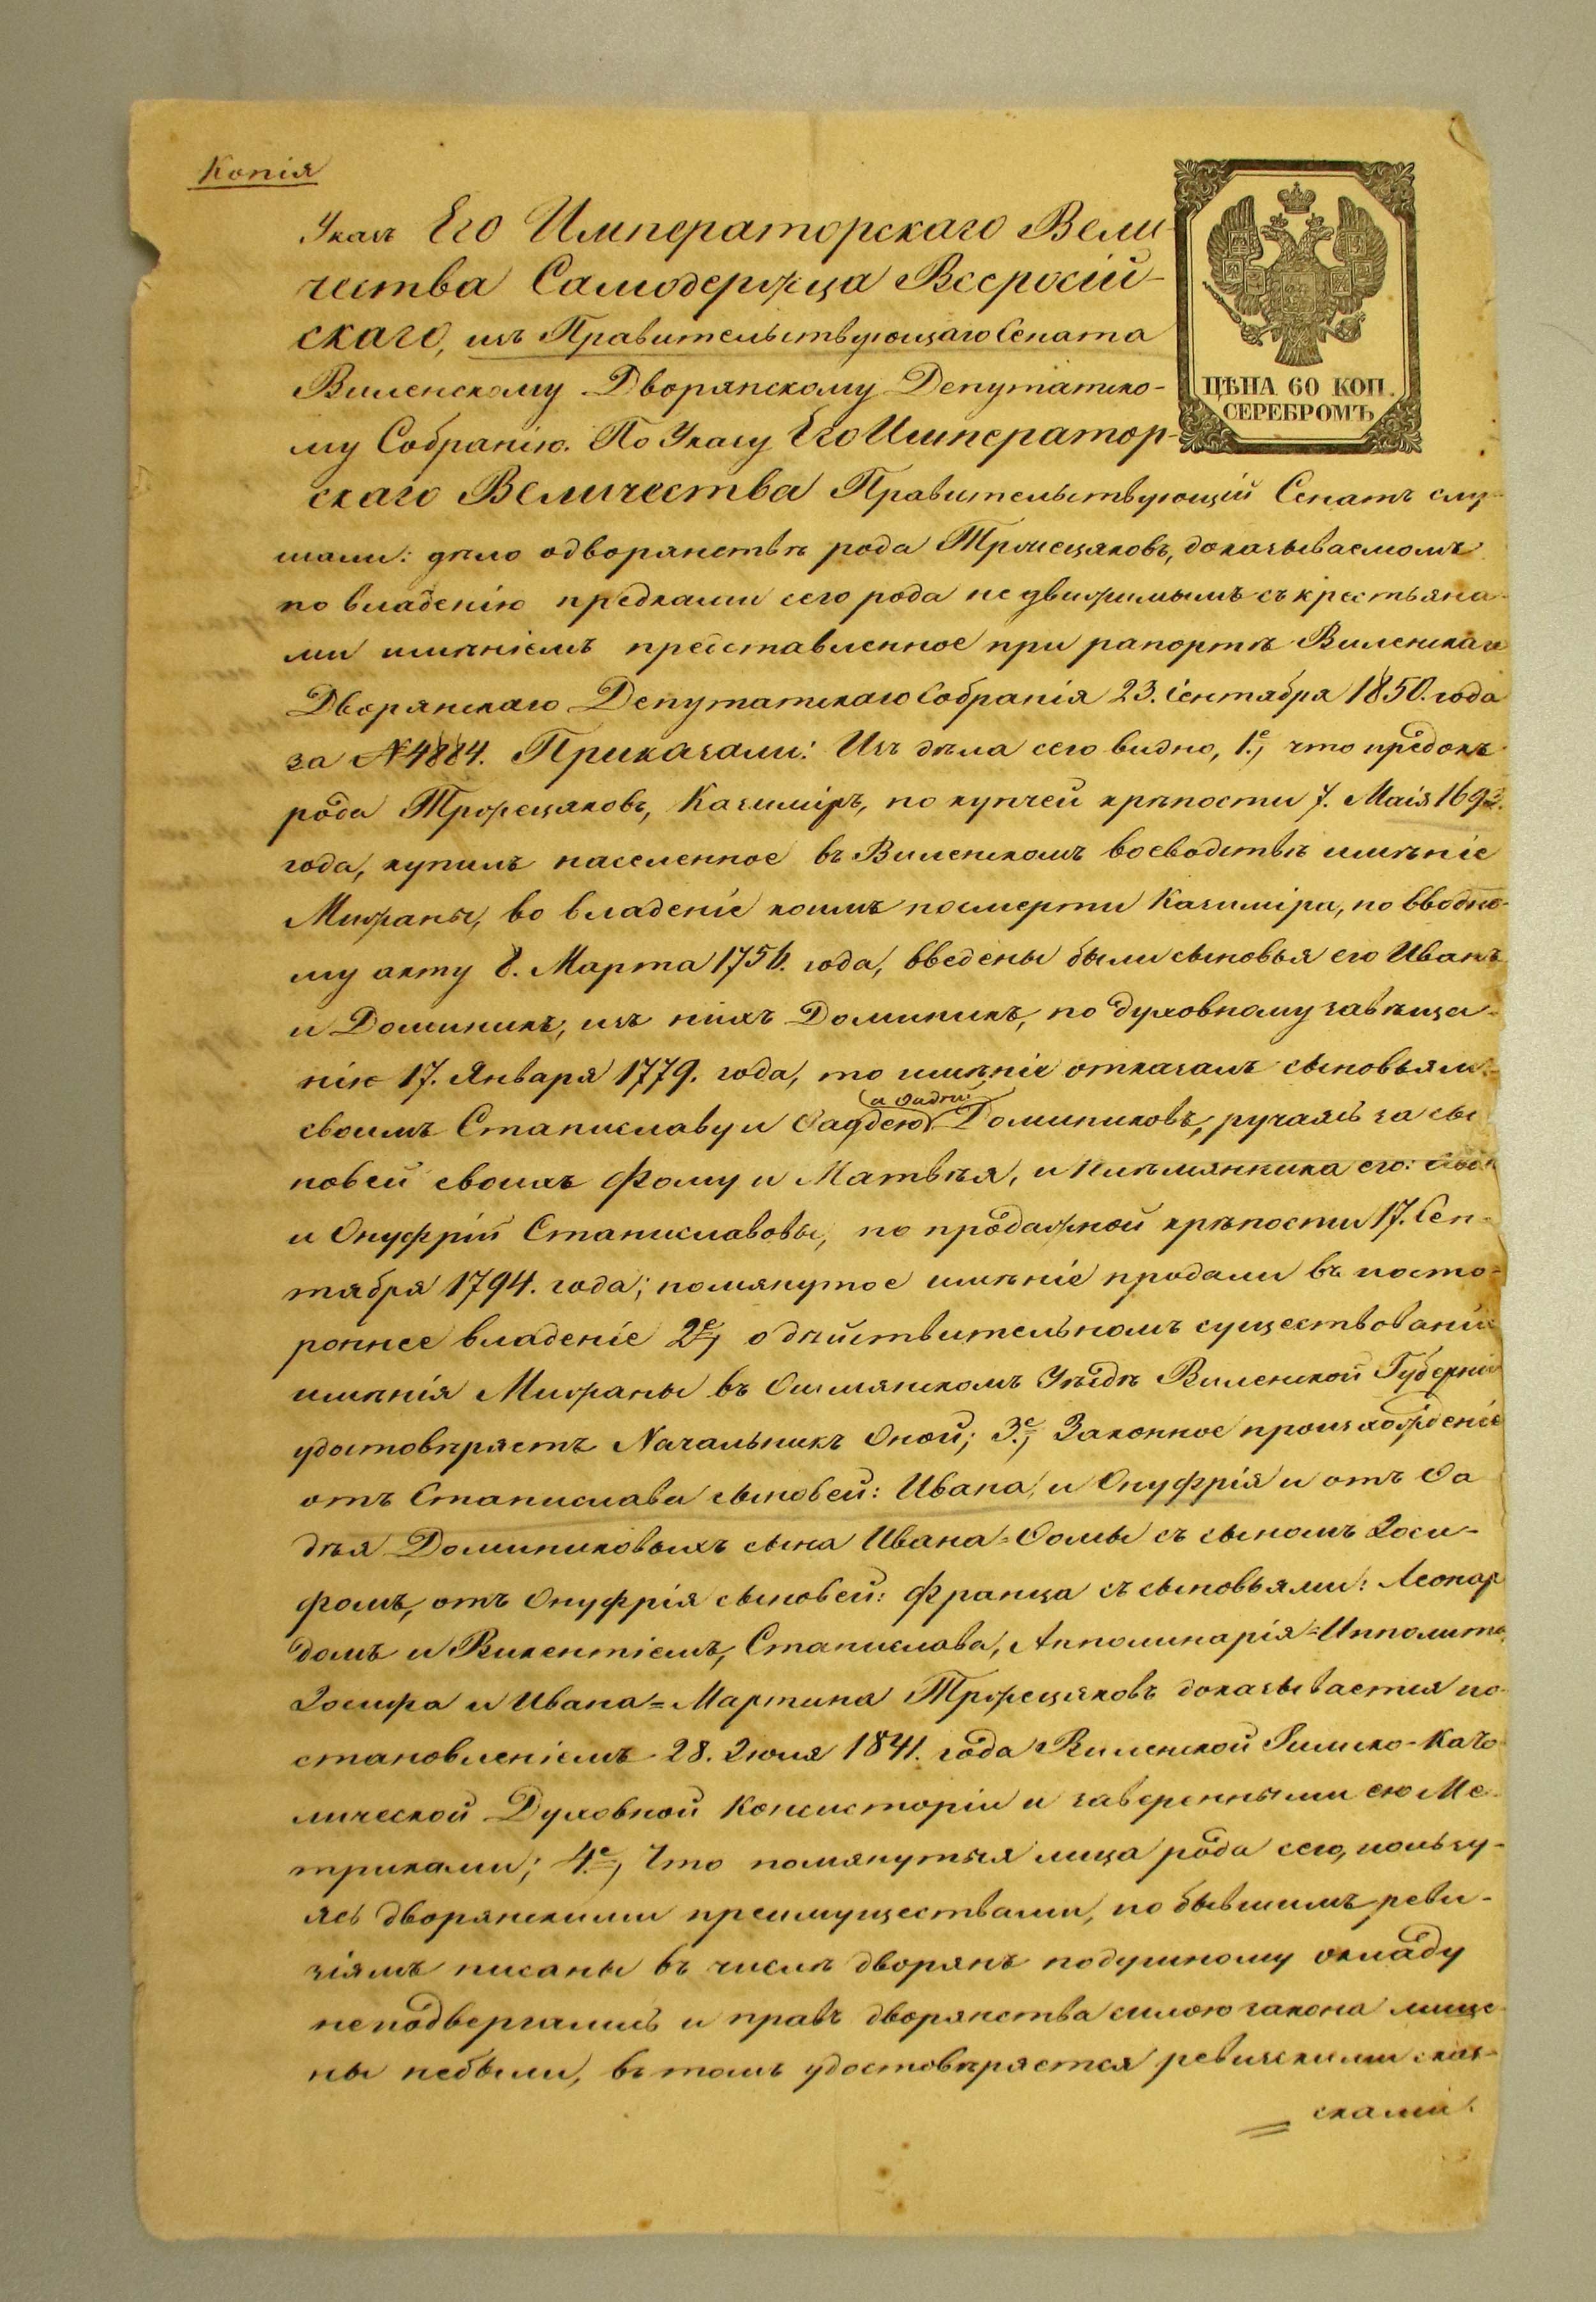 Копія
Указъ Его Императорскаго Вели-
чества Самодержца Всеросій-
скаго, изъ Правительствующаго Сената
ЦѢНА 60 КОП.
СЕРЕБРОМЪ
Виленскому Дворянскому Депутатско-
му Собранію. По Указу Его Император-
скаго Величества Правительствующій Сенатъ слу-
шали: дѣло одворянствѣ рода Тржецяковъ, доказываемомъ
по владенію предками сего рода не движимымъ съ крестьяна-
ми имѣніемъ представленное при рапортѣ Виленскаго
Дворянскаго Депутатскаго Собранія 23. Сентября 1850. года
за №4884. Приказали: Изъ дѣла сего видно, 1.е, что предокъ
рода Тржецяковъ, Казиміръ, по купчей крѣпости 7. Маія 169
года, купилъ населенное въ Виленскомъ воеводствѣ имѣніе
Мижаны, во владеніе коимъ посмерти Казиміра, по вводно-
му акту 8. Марта 175 . года, введены были сыновья его Иванъ
и Доминикъ, изъ нихъ Доминикъ, по духовному завѣща-
нію 17. Января 1779. года, то имѣніе отказалъ сыновьямъ
своимъ Станиславу и Доминиковъ, ручаясь за сы
новей своихъ Фому и Матвѣя, и племянника его:
и Онуфрій Станиславовы, по продажной крѣпости 17. Сен-
тября 1794. года; помянутое имѣніе продали въ посто-
роннее владеніе 2.е, о дѣйствительномъ существованіи
имѣнія Мижаны въ Ошмянскомъ Уѣздѣ Виленской Губерніи
удостовѣряетъ Начальникъ Оной; 3.е, Законное происхожденіе
отъ Станислава сыновей: Ивана, и Онуфрія и отъ Ѳа
дѣя Доминиковыхъ сына Ивана=Ѳомы съ сыномъ Іоси-
фомъ, отъ Онуфрія сыновей: Франца съ сыновьями: Леонар
домъ и Викентіемъ, Станислава, Апполинарія=Ипполита,
Іосифа и Ивана=Мартина Тржецяковъ доказывается по-
становленіемъ 28. Іюля 1841. года Виленской Римско-Като
лической Духовной Консисторіи и заверенными ею Ме-
триками; 4.е, Что помянутыя лица рода сего, пользу-
ясь дворянскими преимуществами, по бывшимъ реви-
зіямъ писаны въ числѣ дворянъ подушному окладу
неподвергались и правъ дворянства силою закона лише-
ны небыли, въ томъ удостовѣряется ревизскими сказ-
сками.